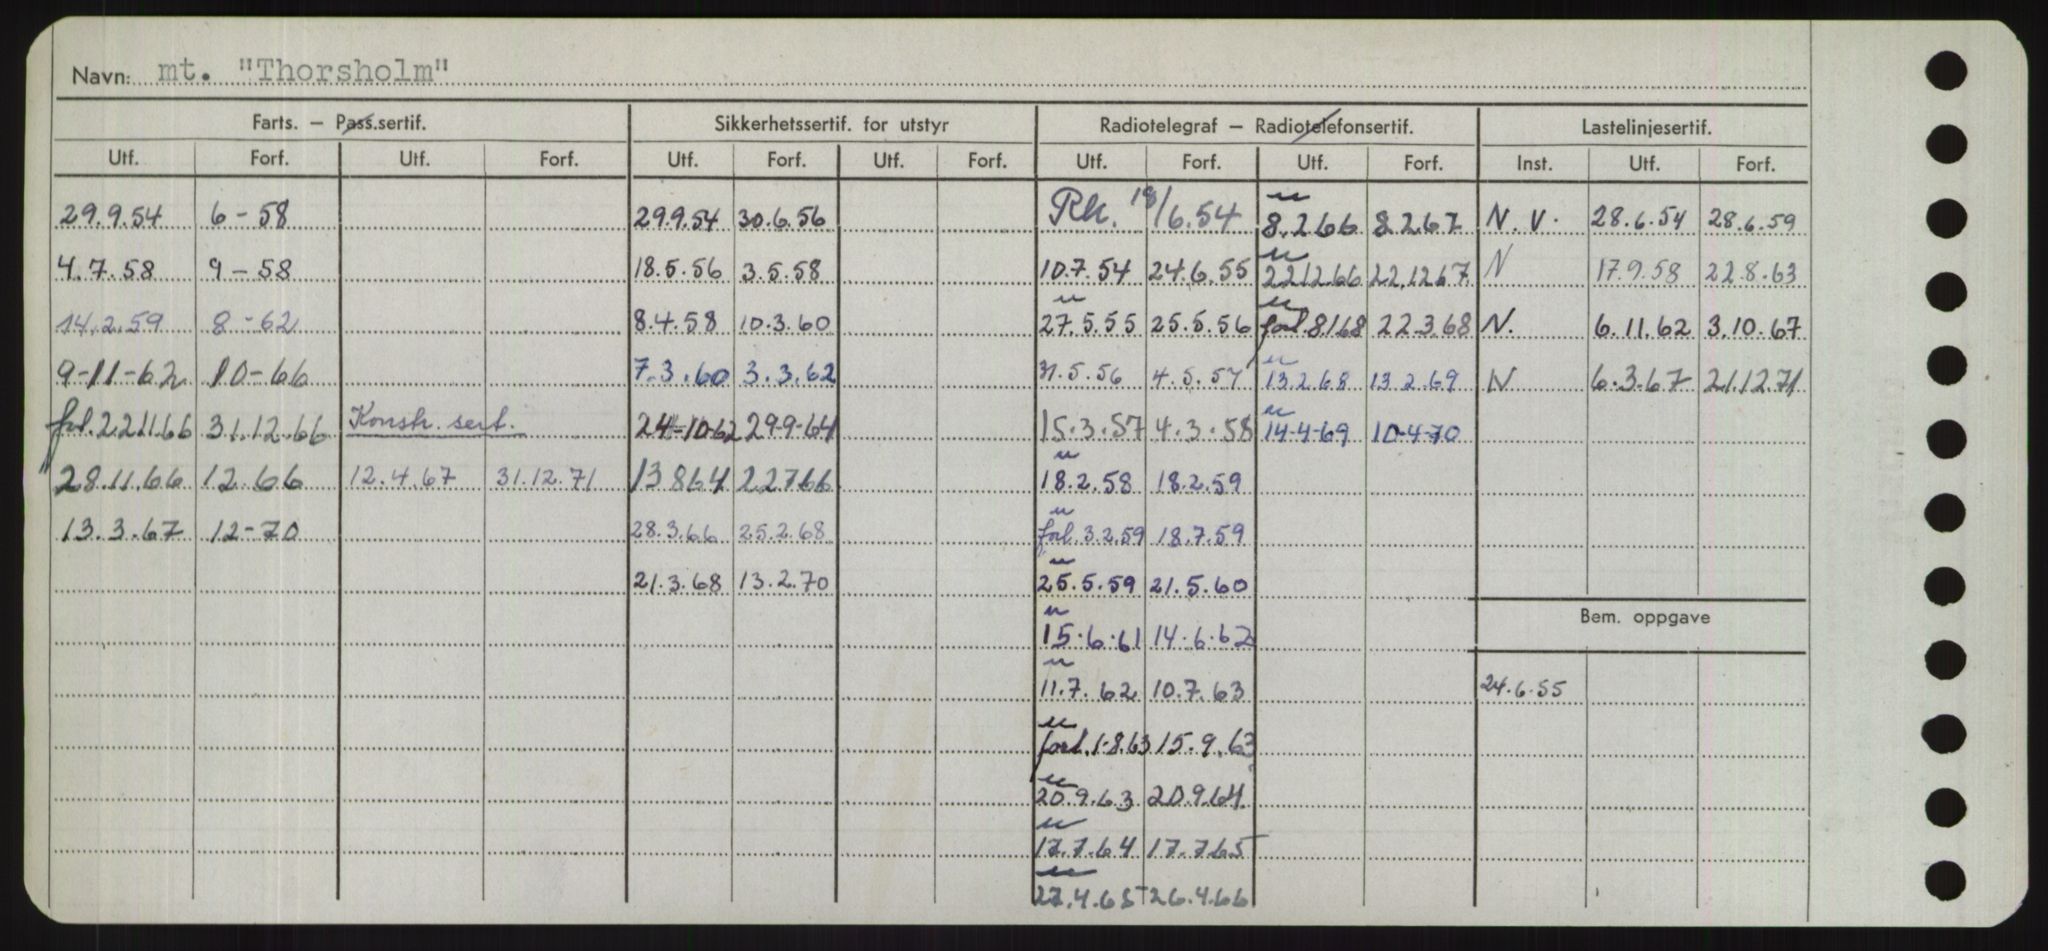 Navn: mt. "Thorsholm"
Farts. — Pass.sertif. Sikkerhetssertif. for utstyr Radiotelegraf — Radiotelefonsertif. Lastelinjesertif.
Utf. Forf. Utf. Forf. Utf. Forf. Utf. Forf. Utf. Forf. Utf. Forf. Inst. Utf. Forf.
29.9.54 6-58 29.9.54 30.6.56 Rk. 18/6.54 8.2.66 8.2.67 N.V. 28.6.54 28.6.59
4.7.58 9-58 18.5.56 3.5.58 10.7.54 24.6.55 22.12.66 22.12.67 N 17.9.58 22.8.63
14.2.59 8-62 8.4.58 10.3.60 27.5.55 25.5.56 forl. 8.1.68 22.3.68 N. 6.11.62 3.10.67
9-11-62 10-66 7.3.60 3.3.62 31.5.56 4.5.57 13.2.68 13.2.69 N 6.3.67 21.12.71
forl. 22.11.66 31.12.66 Konstr. sert. 24-10-62 29-9-64 15.3.57 4.3.58 14-4-69 10-4-70
28.11.66 12.66 12.4.67 31.12.71 13864 22766 18.2.58 18.2.59
13.3.67 12-70 28.3.66 25.2.68 forl. 3.2.59 18.7.59
21.3.68 13.2.70 25.5.59 21.5.60
Bem. oppgave
15.6.61 14.6.62
11.7.62 10.7.63 24.6.55
forl. 1-8.63 15.9.63
20.9.63 20.9.64
17.7.64 17.7.65
27.4.65 26.4.66